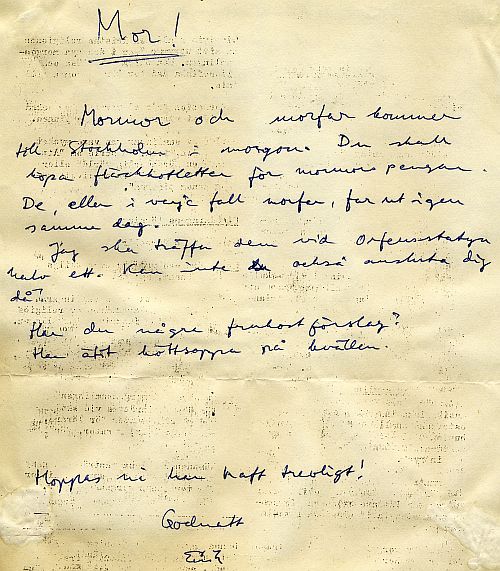 Mor!
Mormor och morfar kommer
till Stockholm i morgon. Du skall
köpa fläskkotletter för mormors pengar.
De, eller i varje fall morfar, far ut igen
samma dag.
Jag ska träffa dem vid Orfeusstatyn
halv ett. Kan inte du också ansluta dig
då?
Har du några frukostförslag?
Har ätit köttsoppa på kvällen.
Hoppas ni har haft trevligt!
Godnatt